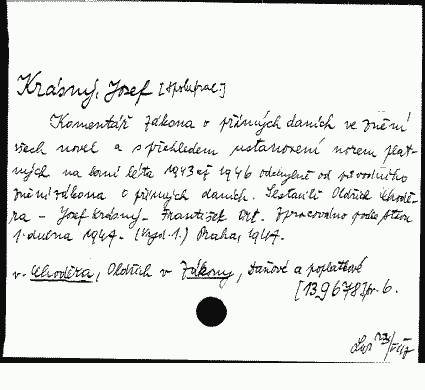 Krásný, Josef [spoluprac.]
Komentář zákona o přímých daních ve znění
všech novel a s přehledem ustanovení norem plat-
ných na berní léta 1943 až 1946 odchylně od původního
znění zákona o přímých daních. Sestavili Oldřich Choděra
- Josef Krásný - František Ort. Zpracováno podle stavu
1. dubna 1947. (Vyd. 1.) Praha, 1947.
v. Choděra, Oldřich v Zákony, daňové a poplatkové
[139678] 6.